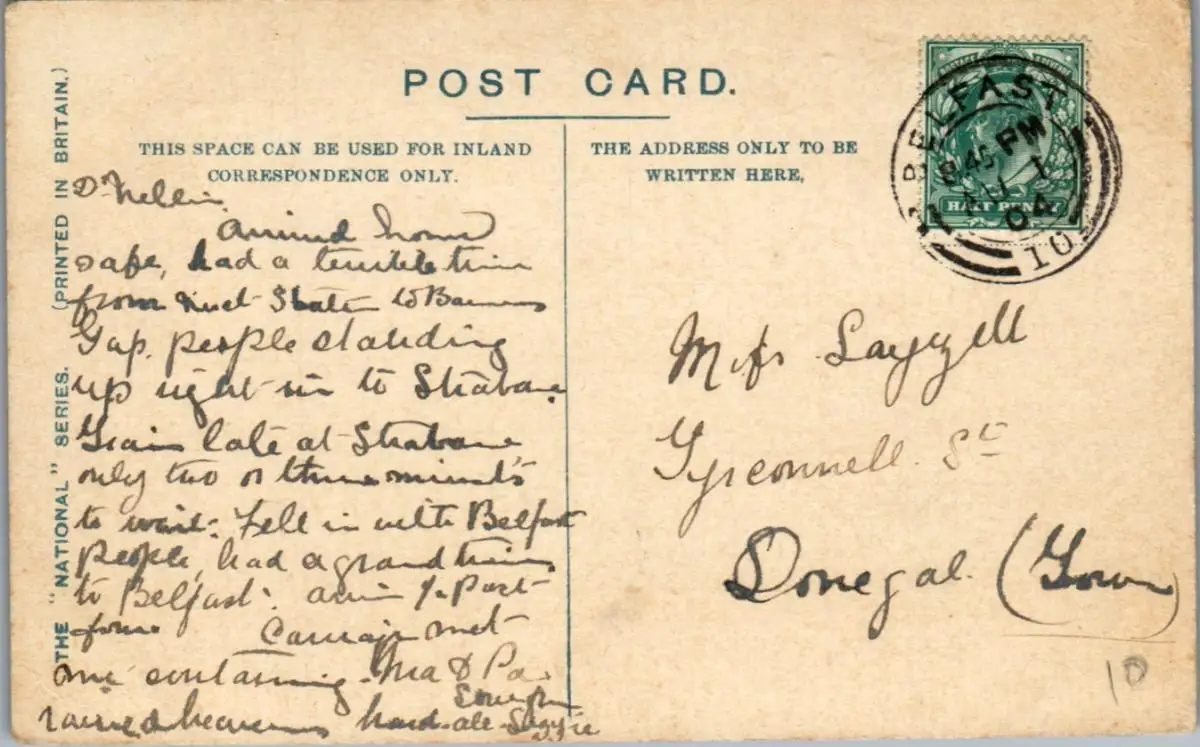 POST CARD.
THIS SPACE CAN BE USED FOR INLAND
CORRESPONDENCE ONLY.
THE ADDRESS ONLY TO BE
WRITTEN HERE,
THE "NATIONAL" SERIES. (PRINTED IN BRITAIN.)
BELFAST
8.45 PM
AU 1
04
101
HALF PENNY
D. Nellie
arrived home
safe, had a terrible time
from to Barnes
Gap. people standing
up right in to Strabane
Train late at Strabane
only two or three minuts
to wait. Fell in with Belfast
people, had a grand time
to Belfast. arriv ½ Past
four Carriage met
me containing Ma & Pa.
rained heavens hard all
Miss Layzell
Tyrconnell St
Donegal (Town)
10